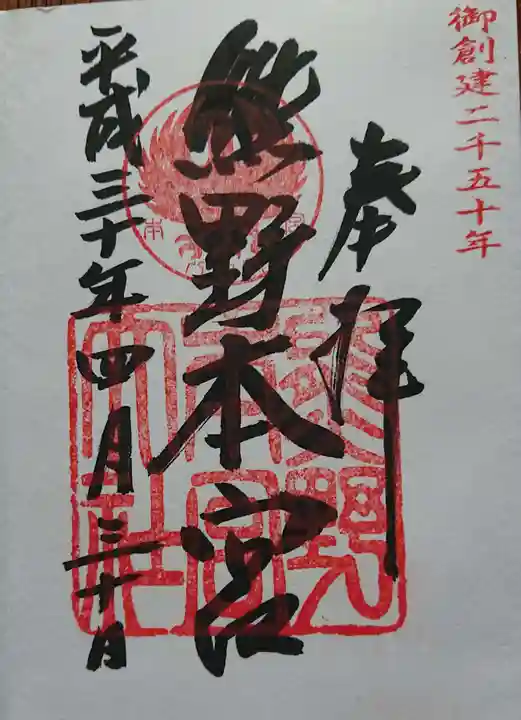 御創建二千五十年
奉拝
熊野本宮
平成三十年四月三十日